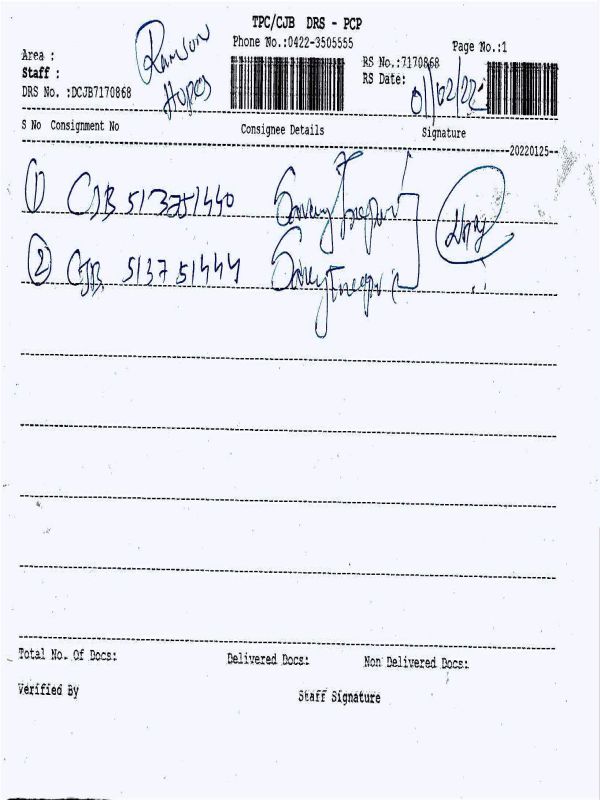 TPC/CJB DRS - PCP
Phone No.:0422-3505555
Page No.:1
Area :
Ramson
RS No.:7170868
Staff :
RS Date: 01/02/22
DRS No. :DCJB7170868
Hopes
S No Consignment No Consignee Details Signature
20220125
1 CJB 513751440
2 CJB 513751444
Total No. Of Docs: Delivered Docs: Non Delivered Docs:
Verified By Staff Signature